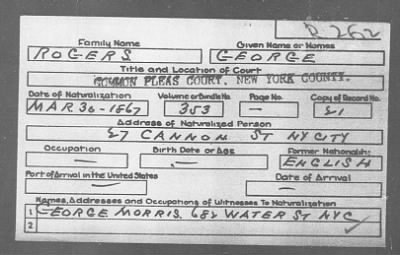 R 262
Family Name Given Name or Names
ROGERS GEORGE
Title and Location of Court
COMMON PLEAS COURT, NEW YORK COUNTY.
Date of Naturalization Volume or Bundle No. Page No. Copy of Record No.
MAR 30-1867 353 — 21
Address of Naturalized Person
27 CANNON ST NY CITY
Occupation Birth Date or Age Former Nationality
— — ENGLISH
Port of Arrival in the United States Date of Arrival
— —
Names, Addresses and Occupations of Witnesses To Naturalization
1 GEORGE MORRIS. 682 WATER ST NYC
2